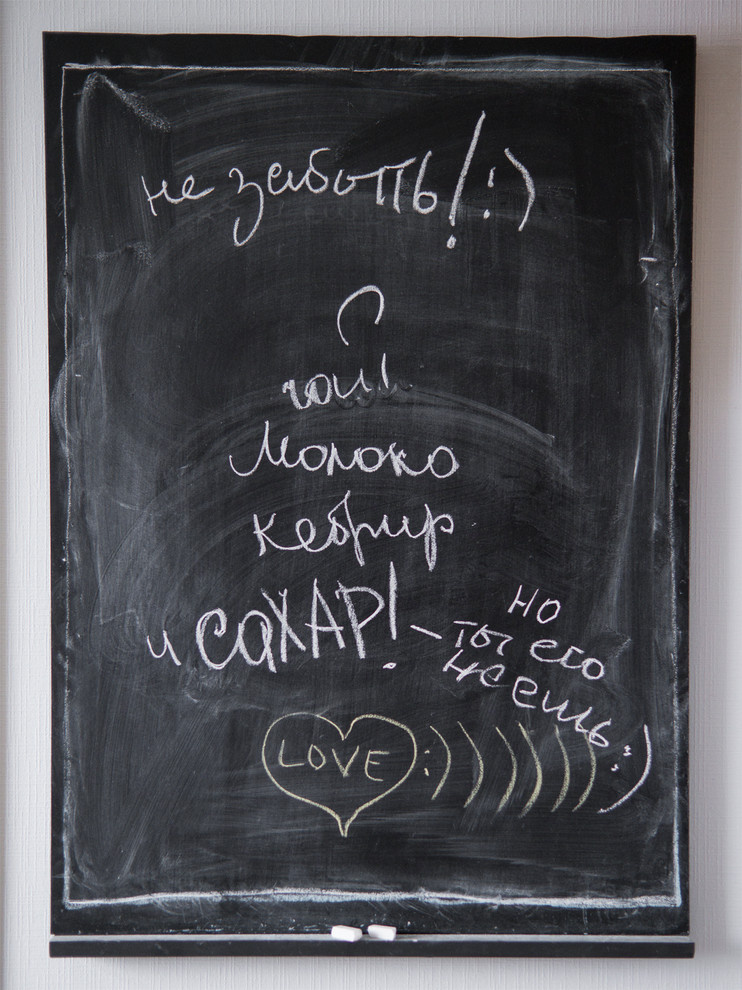 не забыть! :)
Молоко
кефир
и САХАР! —
но
ты его
не ешь :)
LOVE :))))))